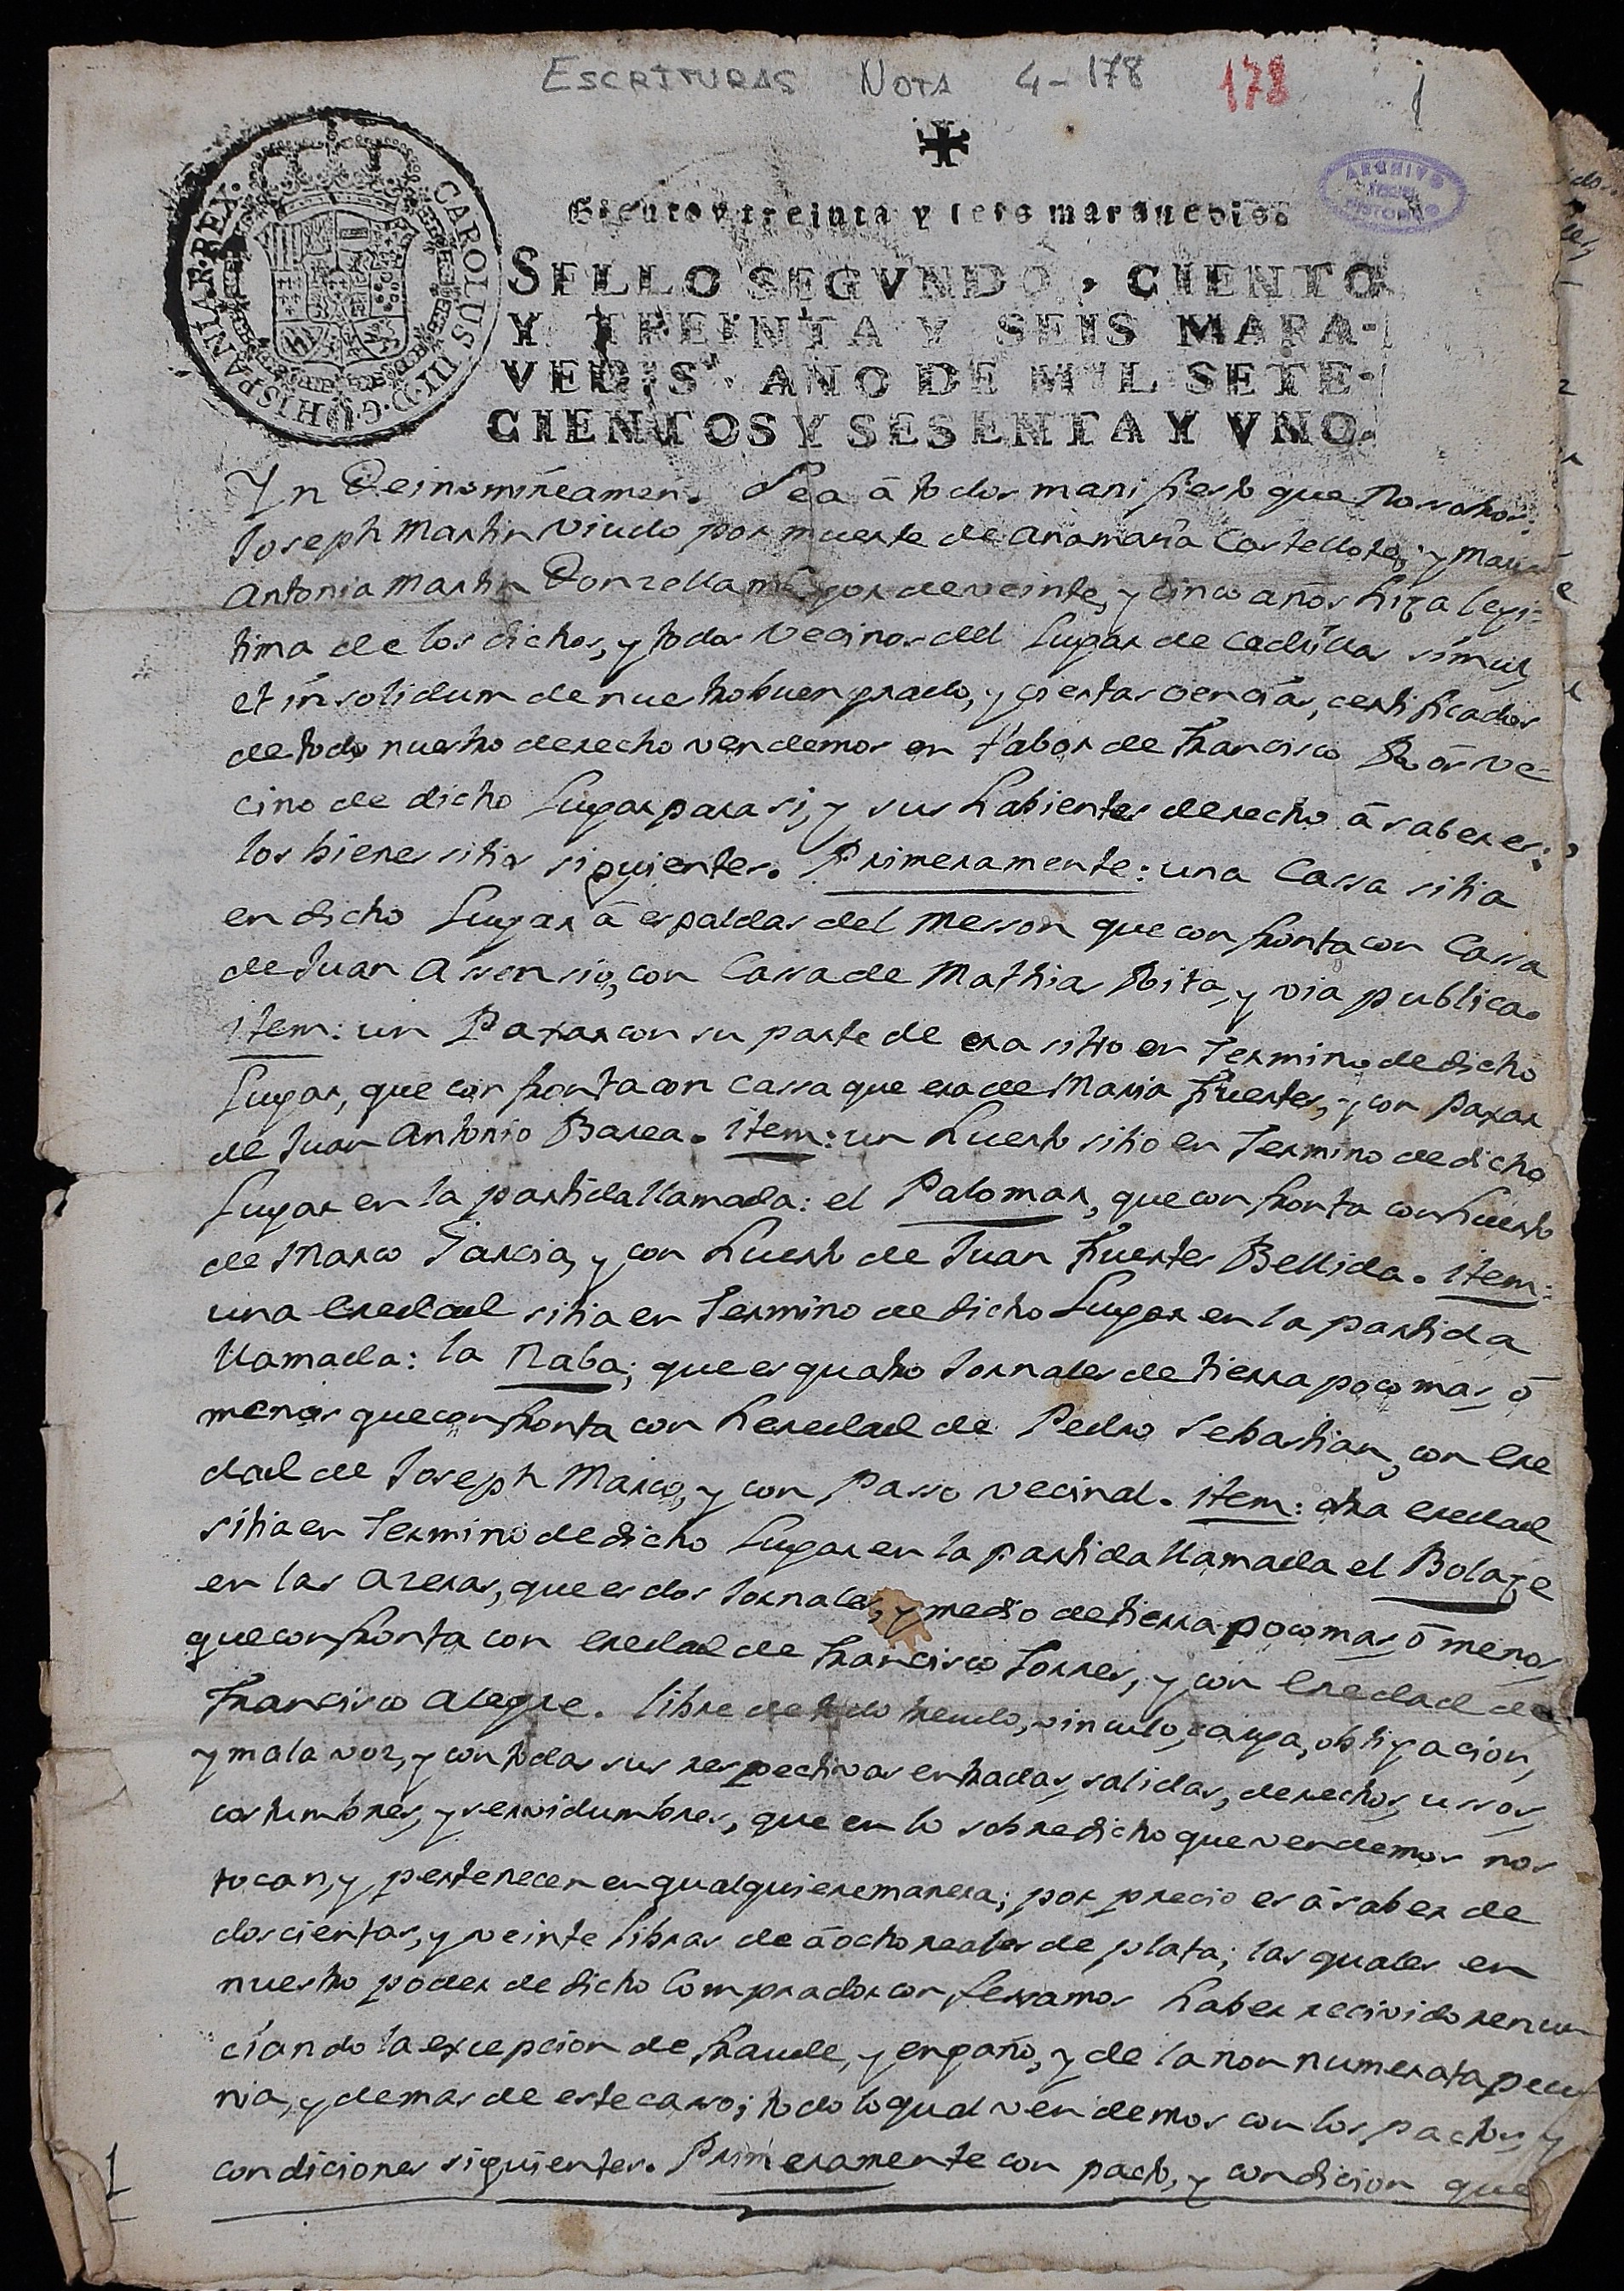 ESCRITURAS NOTA 4-178 178 1
ARCHIVO HISTORICO
CAROLUS III D. G. HISPANIAR. REX.
Ciento y treinta y seis maravedis.
SELLO SEGVNDO, CIENTO
Y TREINTA Y SEIS MARA-
VEDIS, AÑO DE MIL SETE-
CIENTOS Y SESENTA Y VNO.
Yn Dei nomine amen. Sea â todos manifiesto que Nosotros:
Joseph Martin Viudo por muerte de Anamaria Castellote; y Maria
Antonia Martin Donzella mayor de veinte, y cinco años hija legi-
tima de los dichos, y todos Vecinos del Lugar de Cedrillas simul,
et in solidum de nuestro buen grado, y ciertas ciencias, certificados
de todo nuestro derecho vendemos en fabor de Francisco ve-
cino de dicho Lugar para si, y sus habientes derecho â saber es:
los bienes sitios siguientes. Primeramente: una Cassa sitia
en dicho Lugar â espaldas del Messon que confronta con Cassa
de Juan Assensio, con Cassa de Mathias Rita, y via publica.
item: un Paxar con su parte de era sitio en Termino de dicho
Lugar, que confronta con Cassa que era de Maria Fuertes, y con Paxar
de Juan Antonio Barea. item: un huerto sitio en Termino de dicho
Lugar en la partida llamada: el Palomar, que confronta con huerto
de Marco Garcia, y con huerto de Juan Fuertes Bellida. item:
una eredad sitia en Termino de dicho Lugar en la partida
llamada: la Naba; que es quatro Jornales de tierra poco mas, ô
menos que confronta con heredad de Pedro Sebastian, con ere
dad de Joseph Marco, y con Passo vecinal. item: otra eredad
sitia en Termino de dicho Lugar en la partida llamada el Bolage
en las Azeras, que es dos Jornales, y medio de tierra poco mas, ô menos,
que confronta con eredad de Francisco Torres, y con eredad de
Francisco Alegre. libre de todo treudo, vinculo, carga, obligacion,
y mala voz, y con todas sus respectivas entradas, salidas, derechos, ussos,
costumbres, y servidumbres, que en lo sobredicho que vendemos nos
tocan, y pertenecen en qualquiere manera; por precio es â saber de
doscientas, y veinte libras de â ocho reales de plata; las quales en
nuestro poder de dicho Comprador confessamos haber recivido renun
ciando la excepcion de fraude, y engaño, y de la non numerata pecu
nia, y demas de este casso; todo lo qual vendemos con los pactos, y
condiciones siguientes. Primeramente con pacto, y condicion que
1